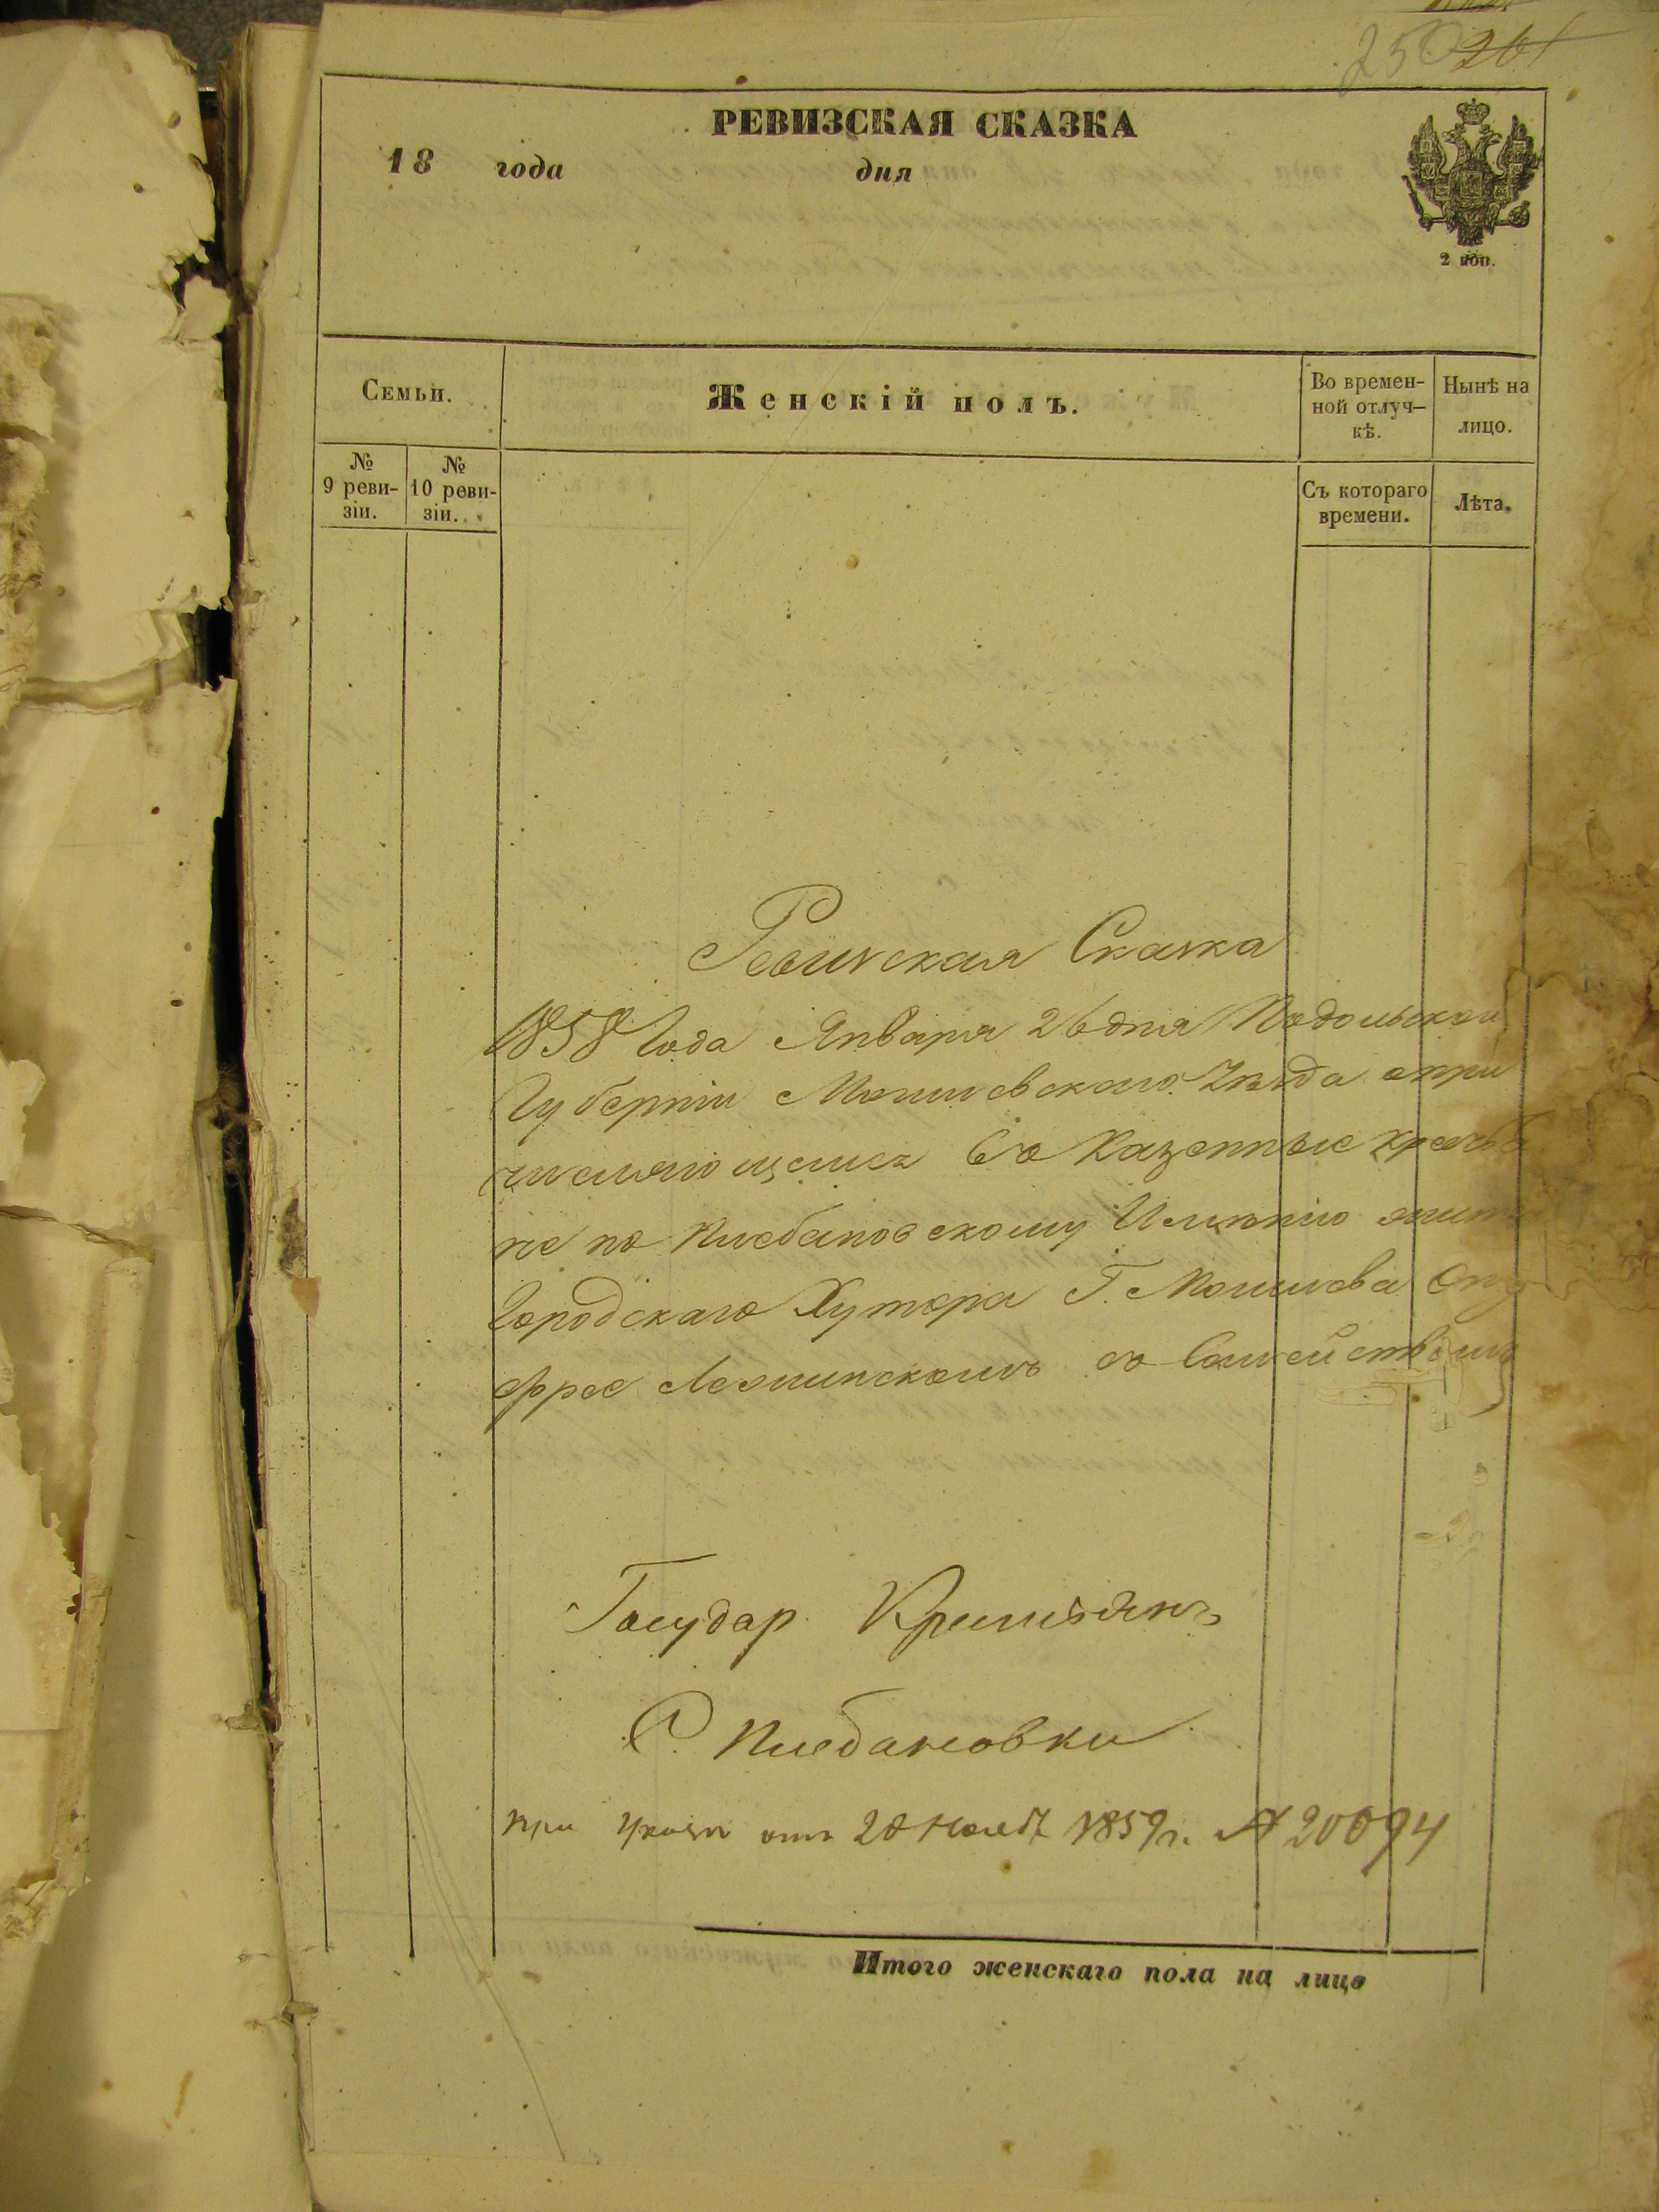 250 261
РЕВИЗСКАЯ СКАЗКА
18 года дня
2 коп.
Семьи.
Женскій полъ.
Во времен-
ной отлуч-
кѣ.
Нынѣ на
лицо.
№
9 реви-
зіи.
№
10 реви-
зіи.
Съ котораго
времени.
Лѣта.
Ревизская Сказка
1858 Года Января 26 дня Подольской
Губерніи Могилевскаго Уѣзда о при
числяющемся въ Казенные крестья
не по Клебановскому Имѣнію жителѣ
Городскаго Хутора Г. Могилева Ону
фрее Лещинскомъ съ Семействомъ
Государ. Крестьянъ
С. Клебановки
при Указѣ отъ 20 Нояб. 1859 г. № 20094
Итого женскаго пола на лицо